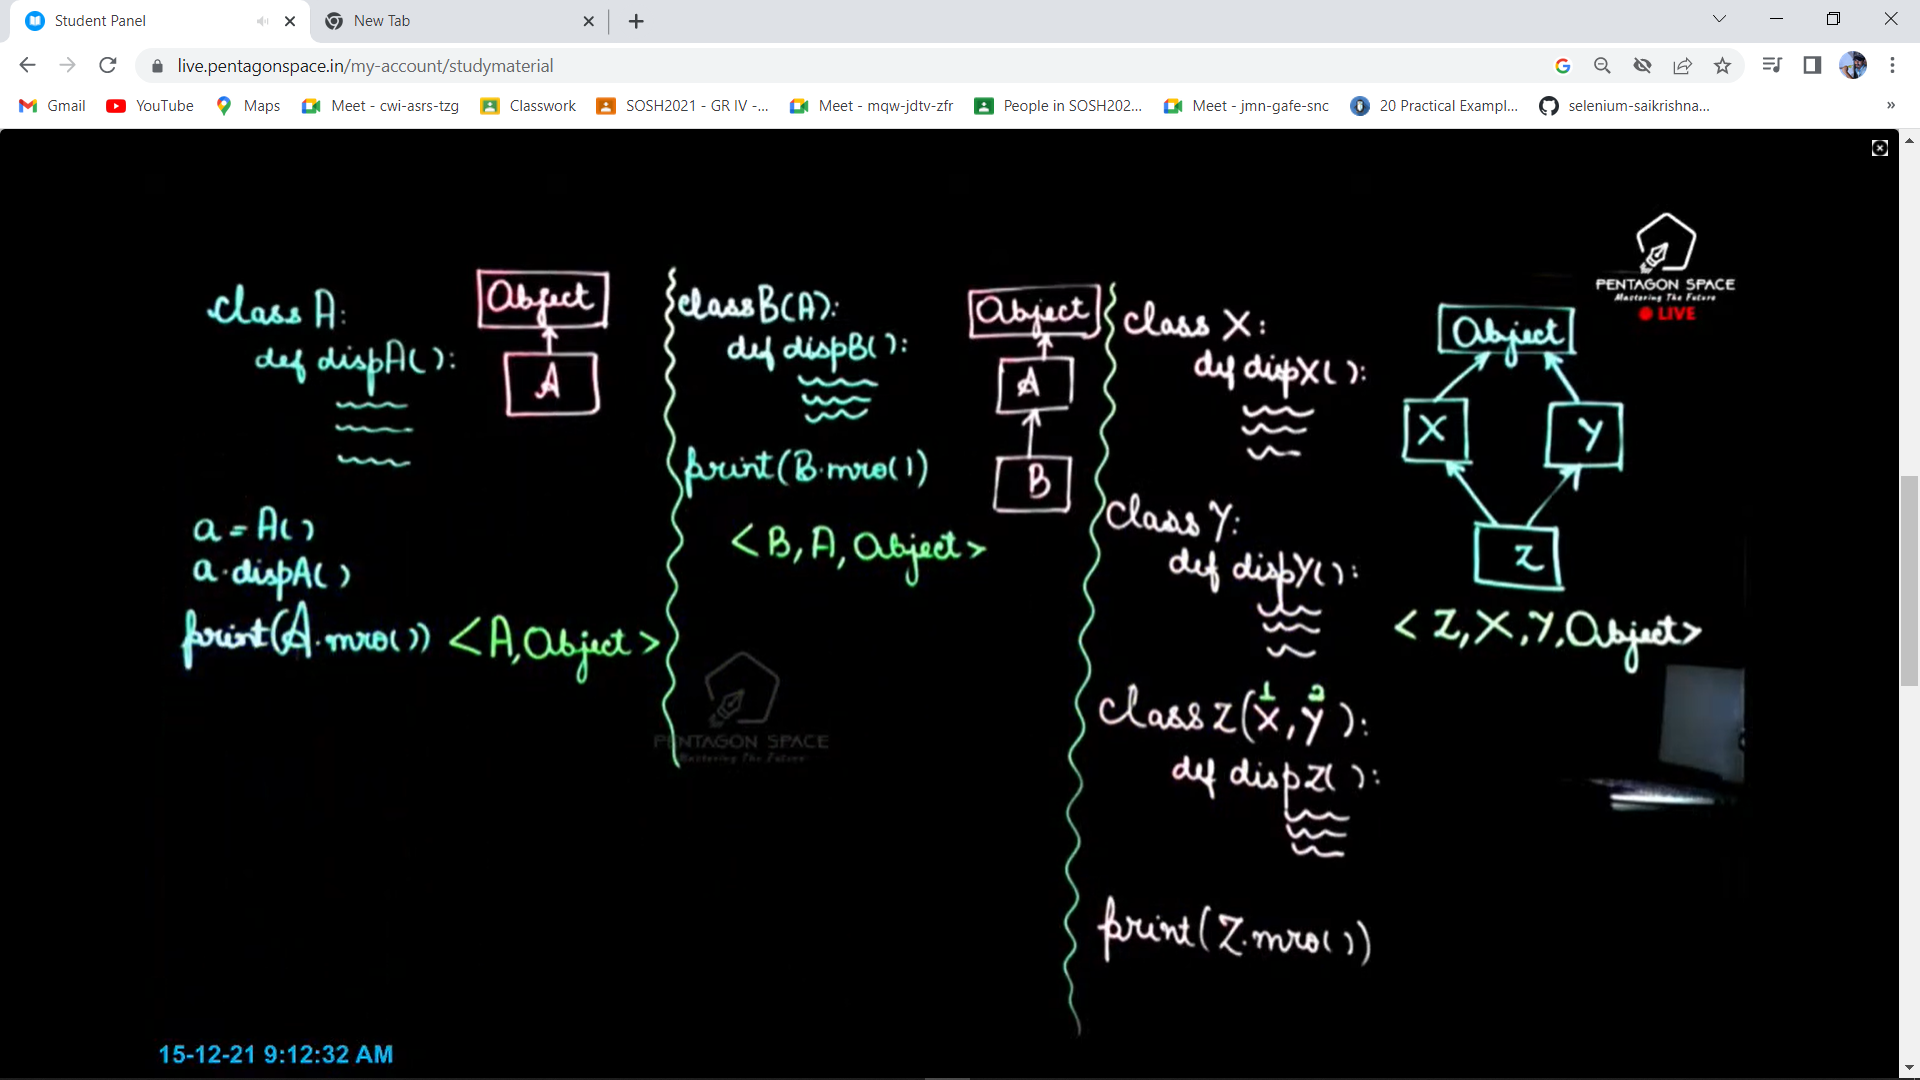 Student Panel
New Tab
live.pentagonspace.in/my-account/studymaterial
Gmail
YouTube
Maps
Meet - cwi-asrs-tzg
Classwork
SOSH2021 - GR IV -...
Meet - mqw-jdtv-zfr
People in SOSH202...
Meet - jmn-gafe-snc
20 Practical Exampl...
selenium-saikrishna...
»
PENTAGON SPACE
Mastering The Future
LIVE
class A:
def dispA():
Object
A
a = A()
a.dispA()
print(A.mro()) <A, Object>
class B(A):
def dispB():
Object
A
B
print(B.mro())
<B, A, Object>
class X:
def dispX():
class Y:
def dispY():
class Z(X, Y):
1 2
def dispZ():
print(Z.mro())
Object
X Y
Z
<Z, X, Y, Object>
PENTAGON SPACE
Mastering The Future
15-12-21 9:12:32 AM